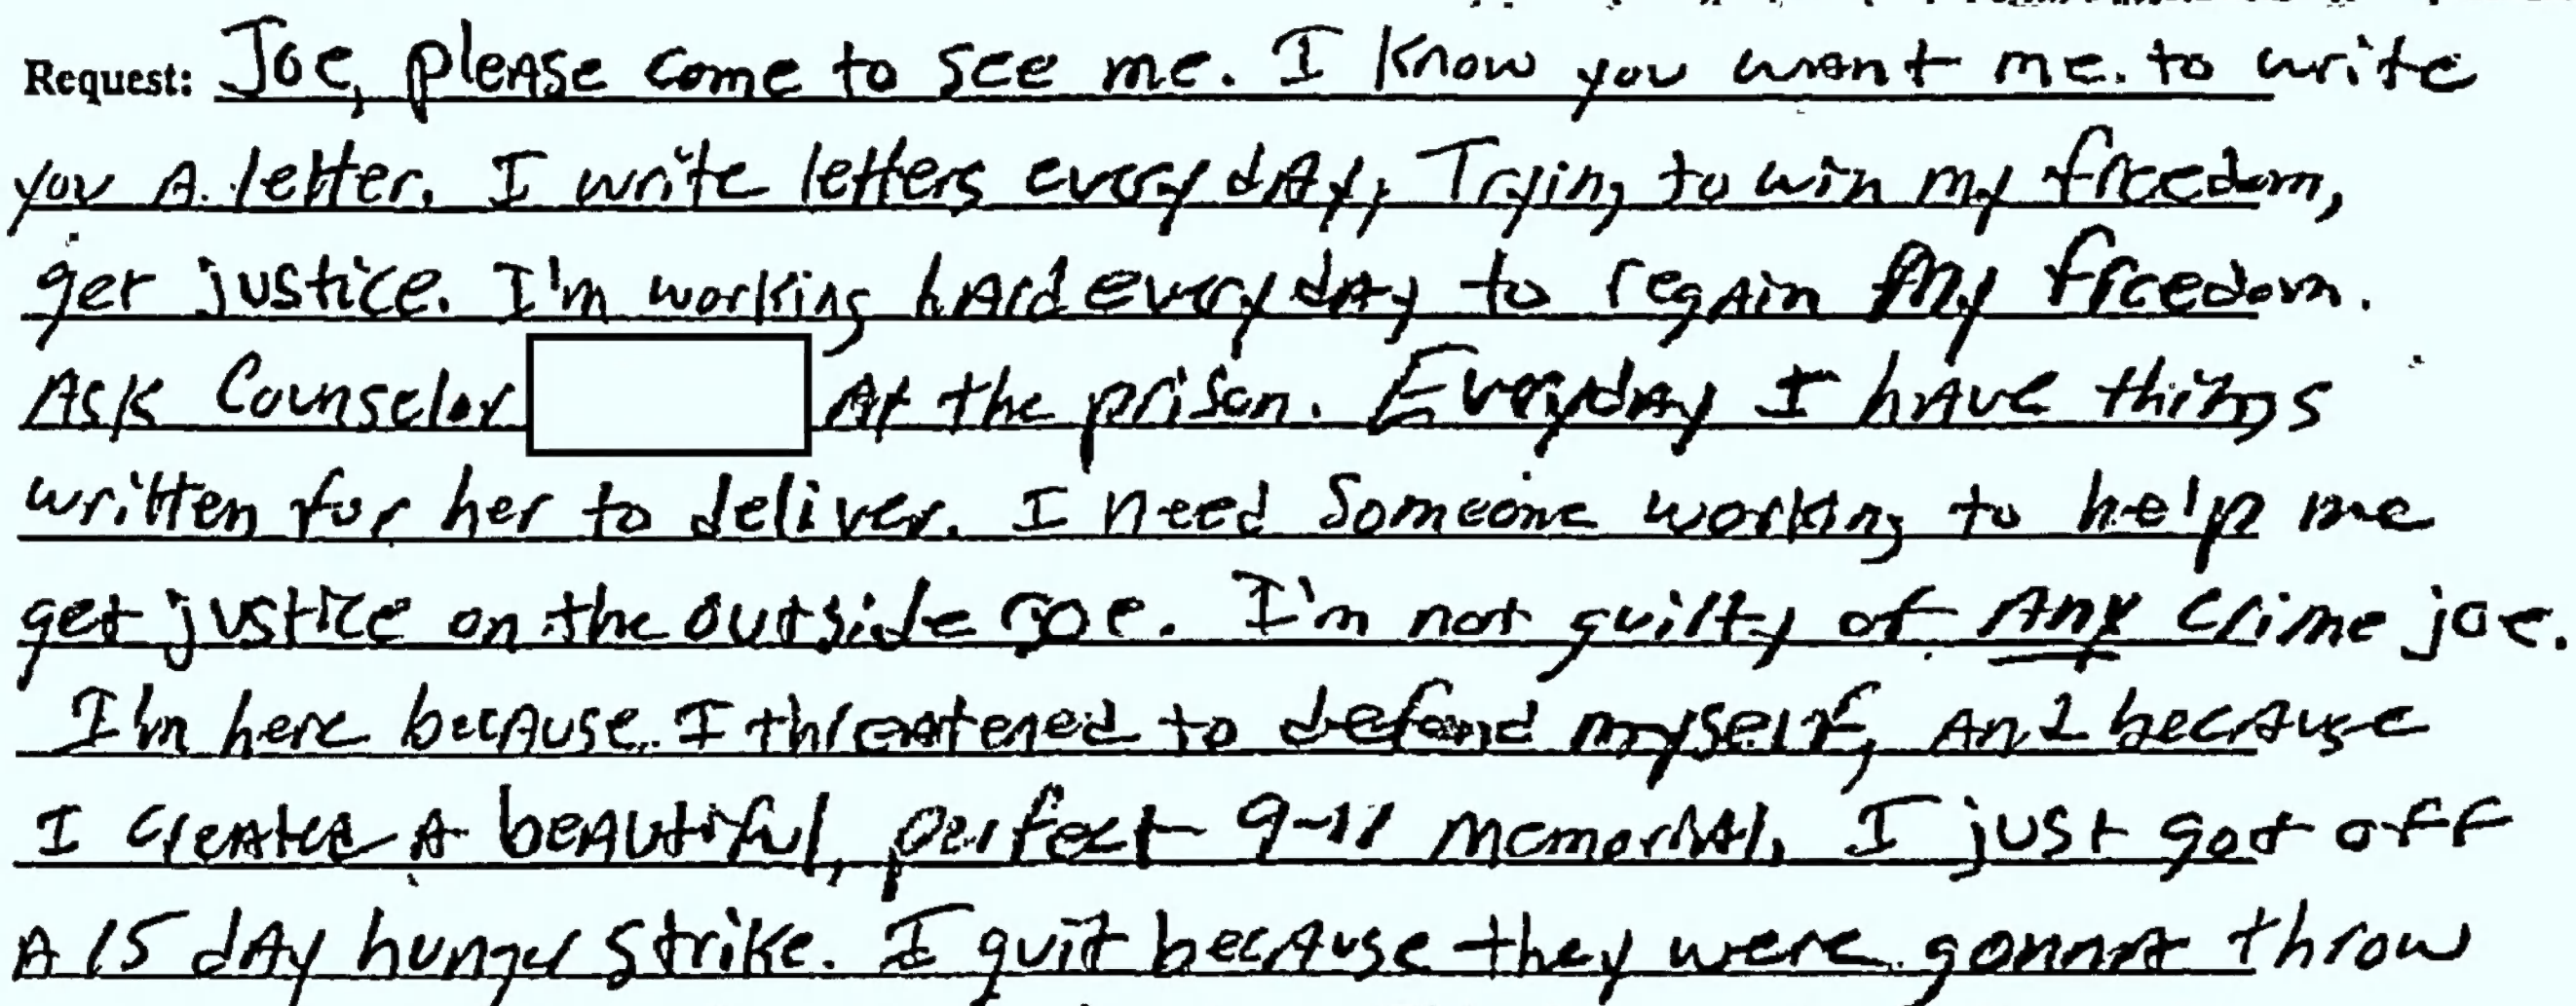 Request: Joe, please come to see me. I know you want me to write
you A letter. I write letters every dAy, Trying to win my freedom,
get justice. I'm working hArd every dAy to regAin My freedom.
Ask Counselor At the prison. Everyday I hAve things
written for her to deliver. I need Someone working to help me
get justice on the outside Joe. I'm not guilty of Any crime joe.
I'm here becAuse I threatened to defend myself, And becAuse
I creAted A beAutiful, perfect 9-11 MemoriAl, I just got off
A 15 dAy hunger Strike. I quit becAuse they were gonnA throw